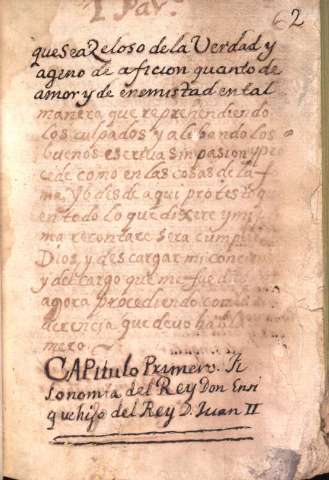 1 Par.
2
que sea Zeloso de la Verdad y
ageno de aficion quanto de
amor y de enemistad en tal
manera que reprehendiendo
los culpados y alabando los
buenos escriba sin pasion y pro
cede como en las cosas de la fe
y desde aqui protesto que
en todo lo que dixere y mi
ma recontare sera cumplir
Dios y descargar mi conci
y del cargo que me fue d
agora procediendo con la
que devo ha
mero
CAPitulo Primero. Fi
sonomia del Rey Don Enri
que hijo del Rey D. Juan II